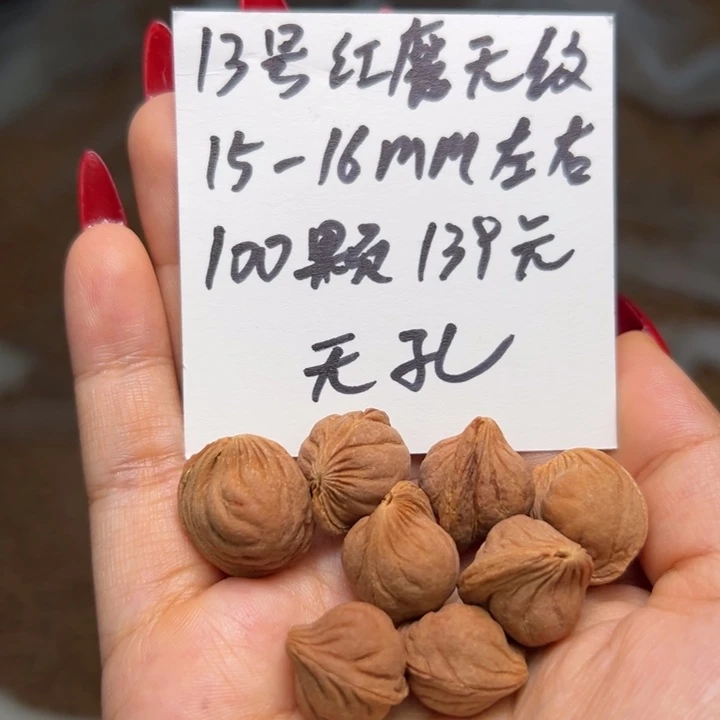 13号红磨无纹
15-16mm左右
100颗139元
无孔